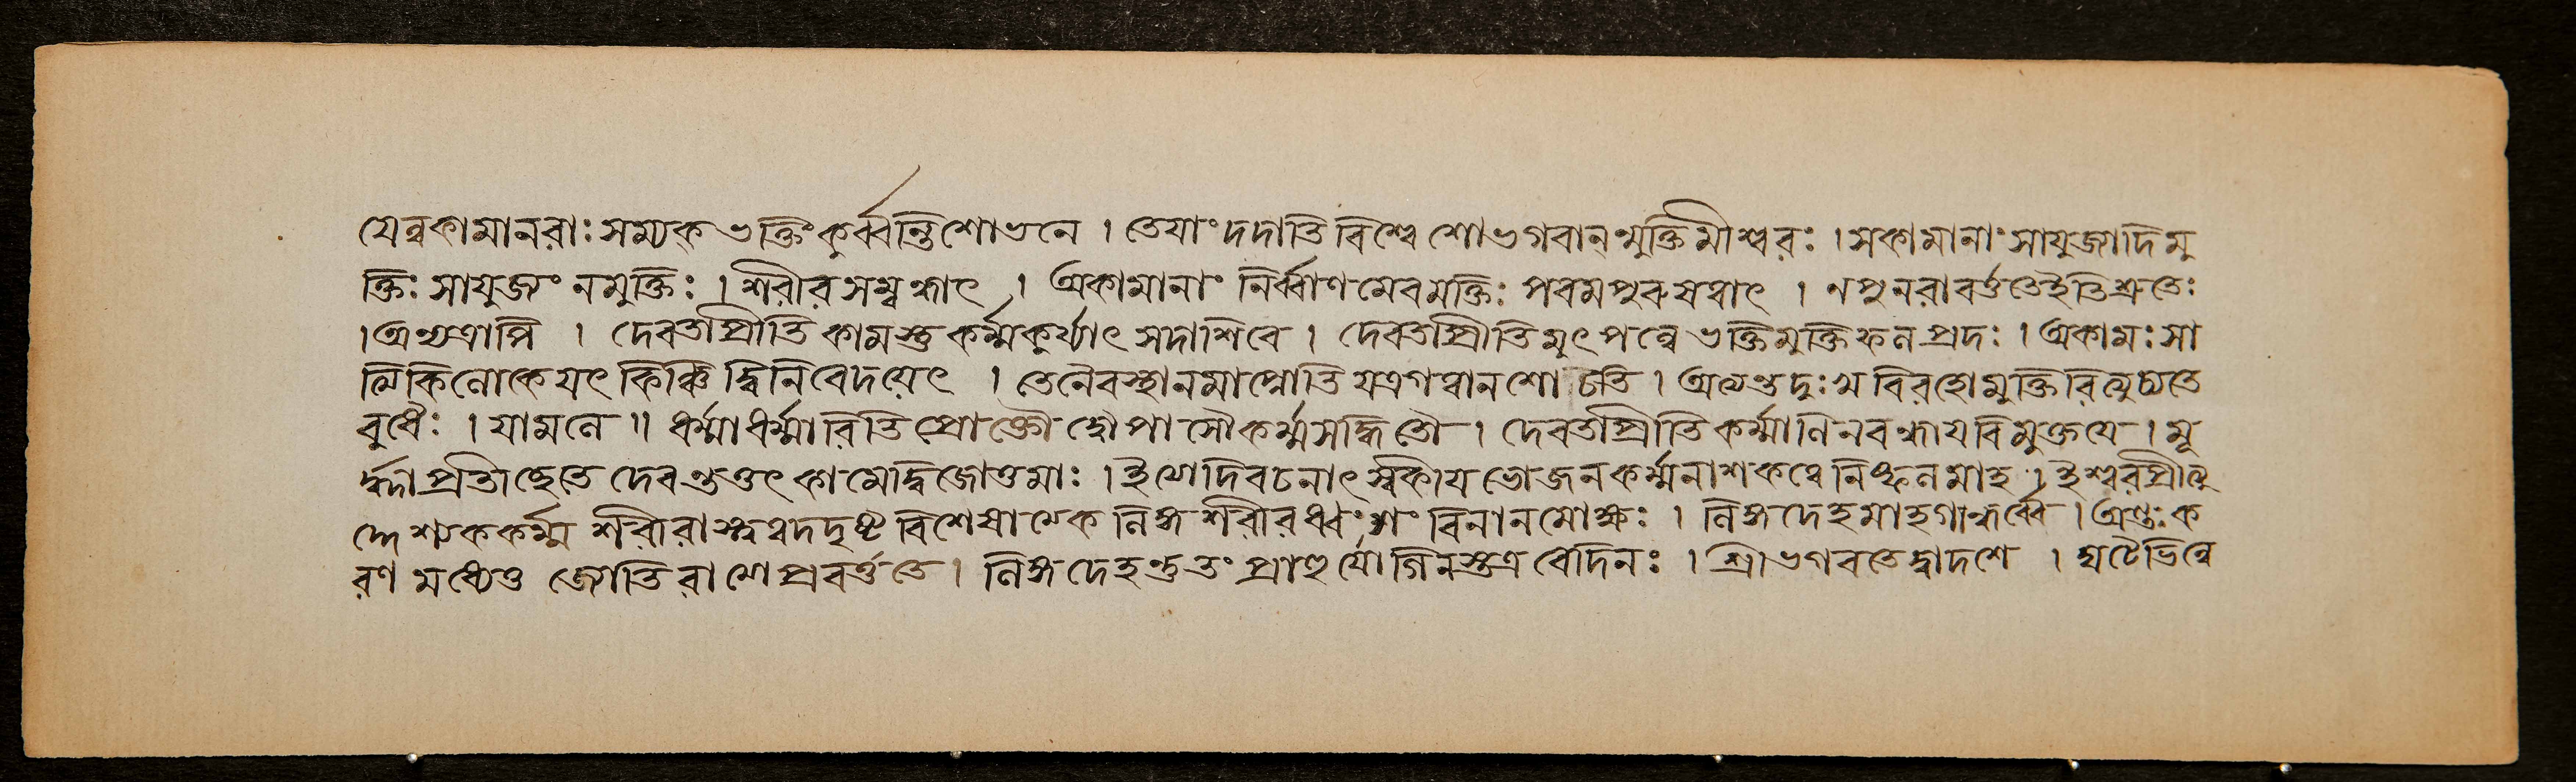 যেন্বকামানরাঃ সম্যক্ ভক্তিং কুর্ব্বন্তি শোভনে । তেষাং দদাতি বিশ্বেশো ভগবান্ মুক্তিমীশ্বরঃ । সকামানাং সাযুজ্যাদিমু
ক্তিঃ সাযুজ্যং নমুক্তিঃ । শরীরসম্বন্ধাৎ । অকামানাং নির্ব্বাণমেবমুক্তিঃ পরমপুরুষত্বাৎ । নপুনরাবর্ত্ততেইতিশ্রুতেঃ
। অন্যত্রাপি । দেবতাপ্রীতিকামস্তু কর্ম্মকুর্য্যাৎ সদাশিবে । দেবতাপ্রীতিমুৎপন্বে ভক্তিমুক্তিফলপ্রদঃ । অকামঃ সা
ত্বিকিলোকে যৎ কিঞ্চিদ্বিনিবেদয়েৎ । তেনৈবস্থানমাপ্নোতি যত্রগত্বানশোচতি । অত্যন্তদুঃখবিরহোমুক্তিরিত্যুচ্যতে
বুধৈঃ । যামলে ॥ ধর্ম্মাধর্ম্মাবিতিপ্রোক্তৌ দ্বৌপাসৌকর্ম্মসংজ্ঞিতৌ । দেবতাপ্রীতিকর্ম্মাণি নবন্ধায়বিমুক্তয়ে । মূ
র্দ্ধ্না প্রতীচ্ছেতে দেবস্তুতৎকামোদ্বিজোত্তমাঃ । ইত্যাদিবচনাৎ স্বকীয়ভোজনকর্ম্মনাশকত্বে নিষ্ফলমাহ । ইশ্বরপ্রীত্যু
দ্দেশ্যককর্ম্ম শরীরারম্ভকবদদৃষ্টবিশেষাত্মক লিঙ্গশরীরধ্বংশং বিনানমোক্ষঃ । লিঙ্গদেহমাহগান্ধর্ব্বে । অন্তঃক
রণ মধ্যেতু জ্যোতিরাত্মাপ্রবর্ত্ততে । লিঙ্গদেহন্তুতং প্রাহুর্যোগিনস্তত্রবেদিনঃ । শ্রীভগবতেদ্বাদশে । ঘটেভিন্বে